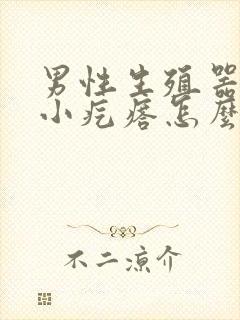 男性生殖器
小疙瘩怎麼
不二涼介